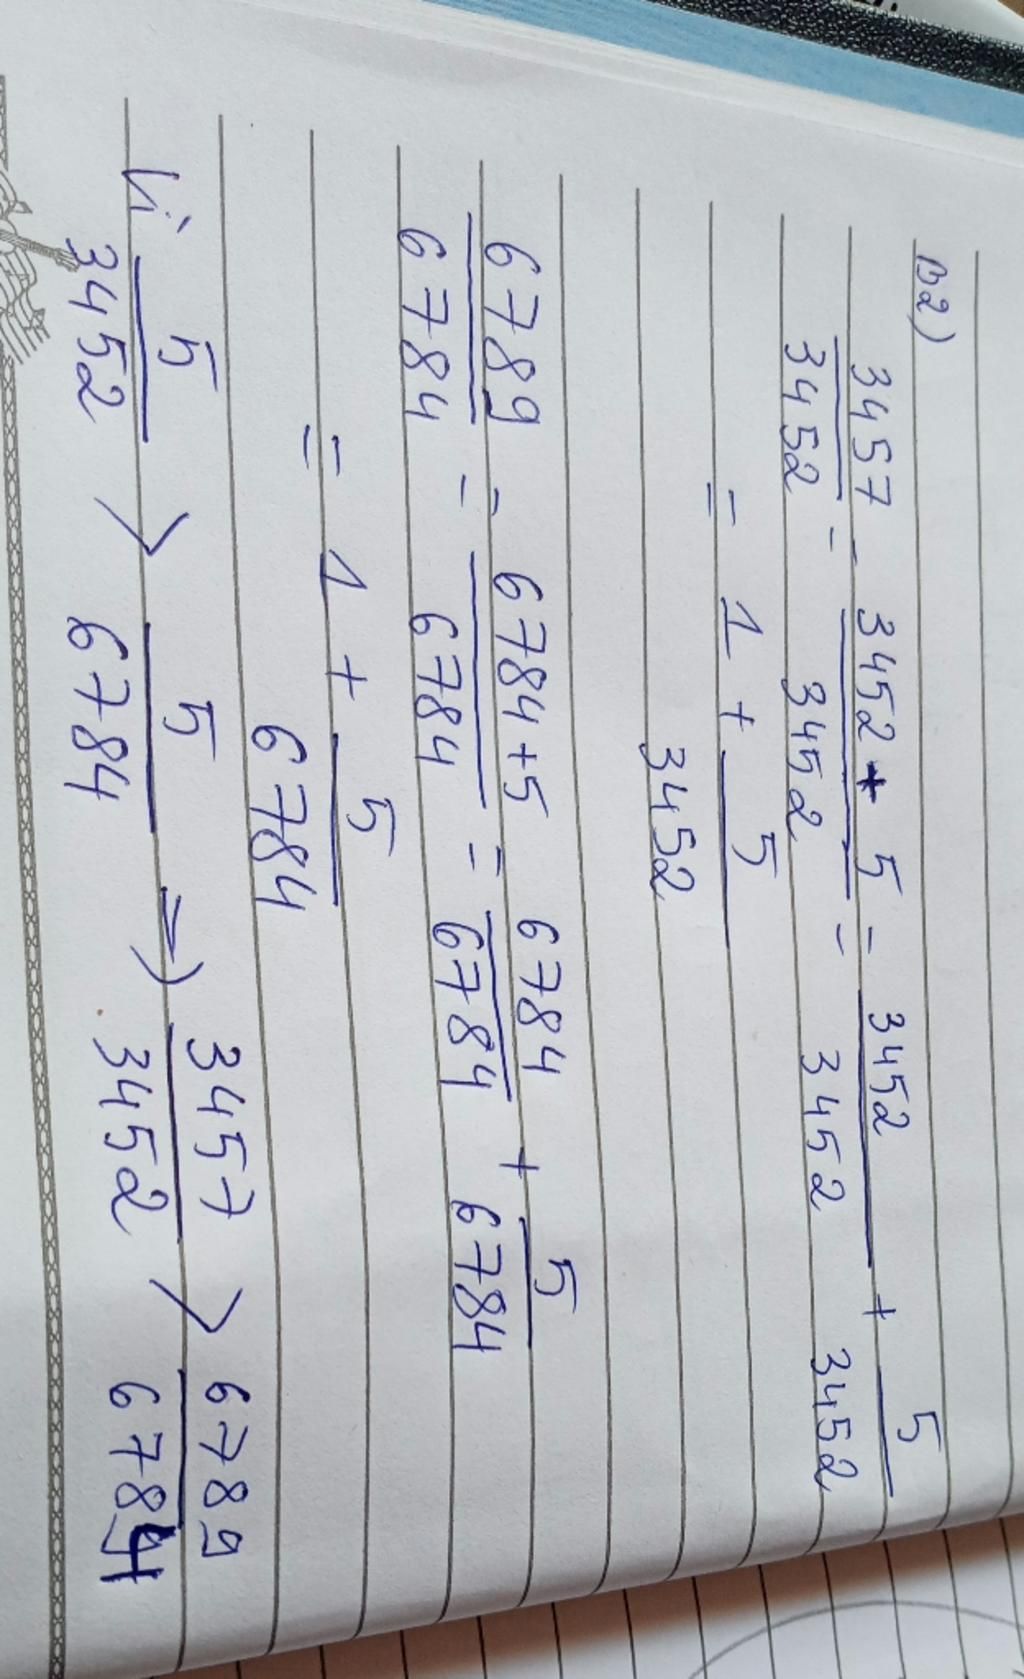 B2)
3457/3452 = 3452 + 5/3452 = 3452/3452 + 5/3452
= 1 + 5/3452
6789/6784 = 6784+5/6784 = 6784/6784 + 5/6784
= 1 + 5/6784
Vì 5/3452 > 5/6784 => 3457/3452 > 6789/6784